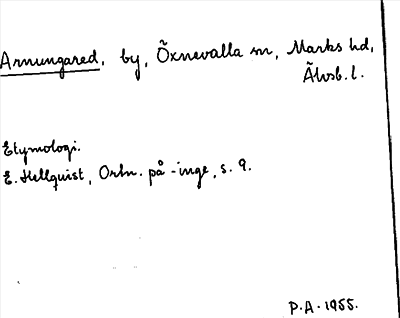 Arnungared, by, Öxnevalla sn, Marks hd,
Älvsb. l.
Etymologi.
E. Hellquist, Ortn. på -inge, s. 9.
P.A. 1955.